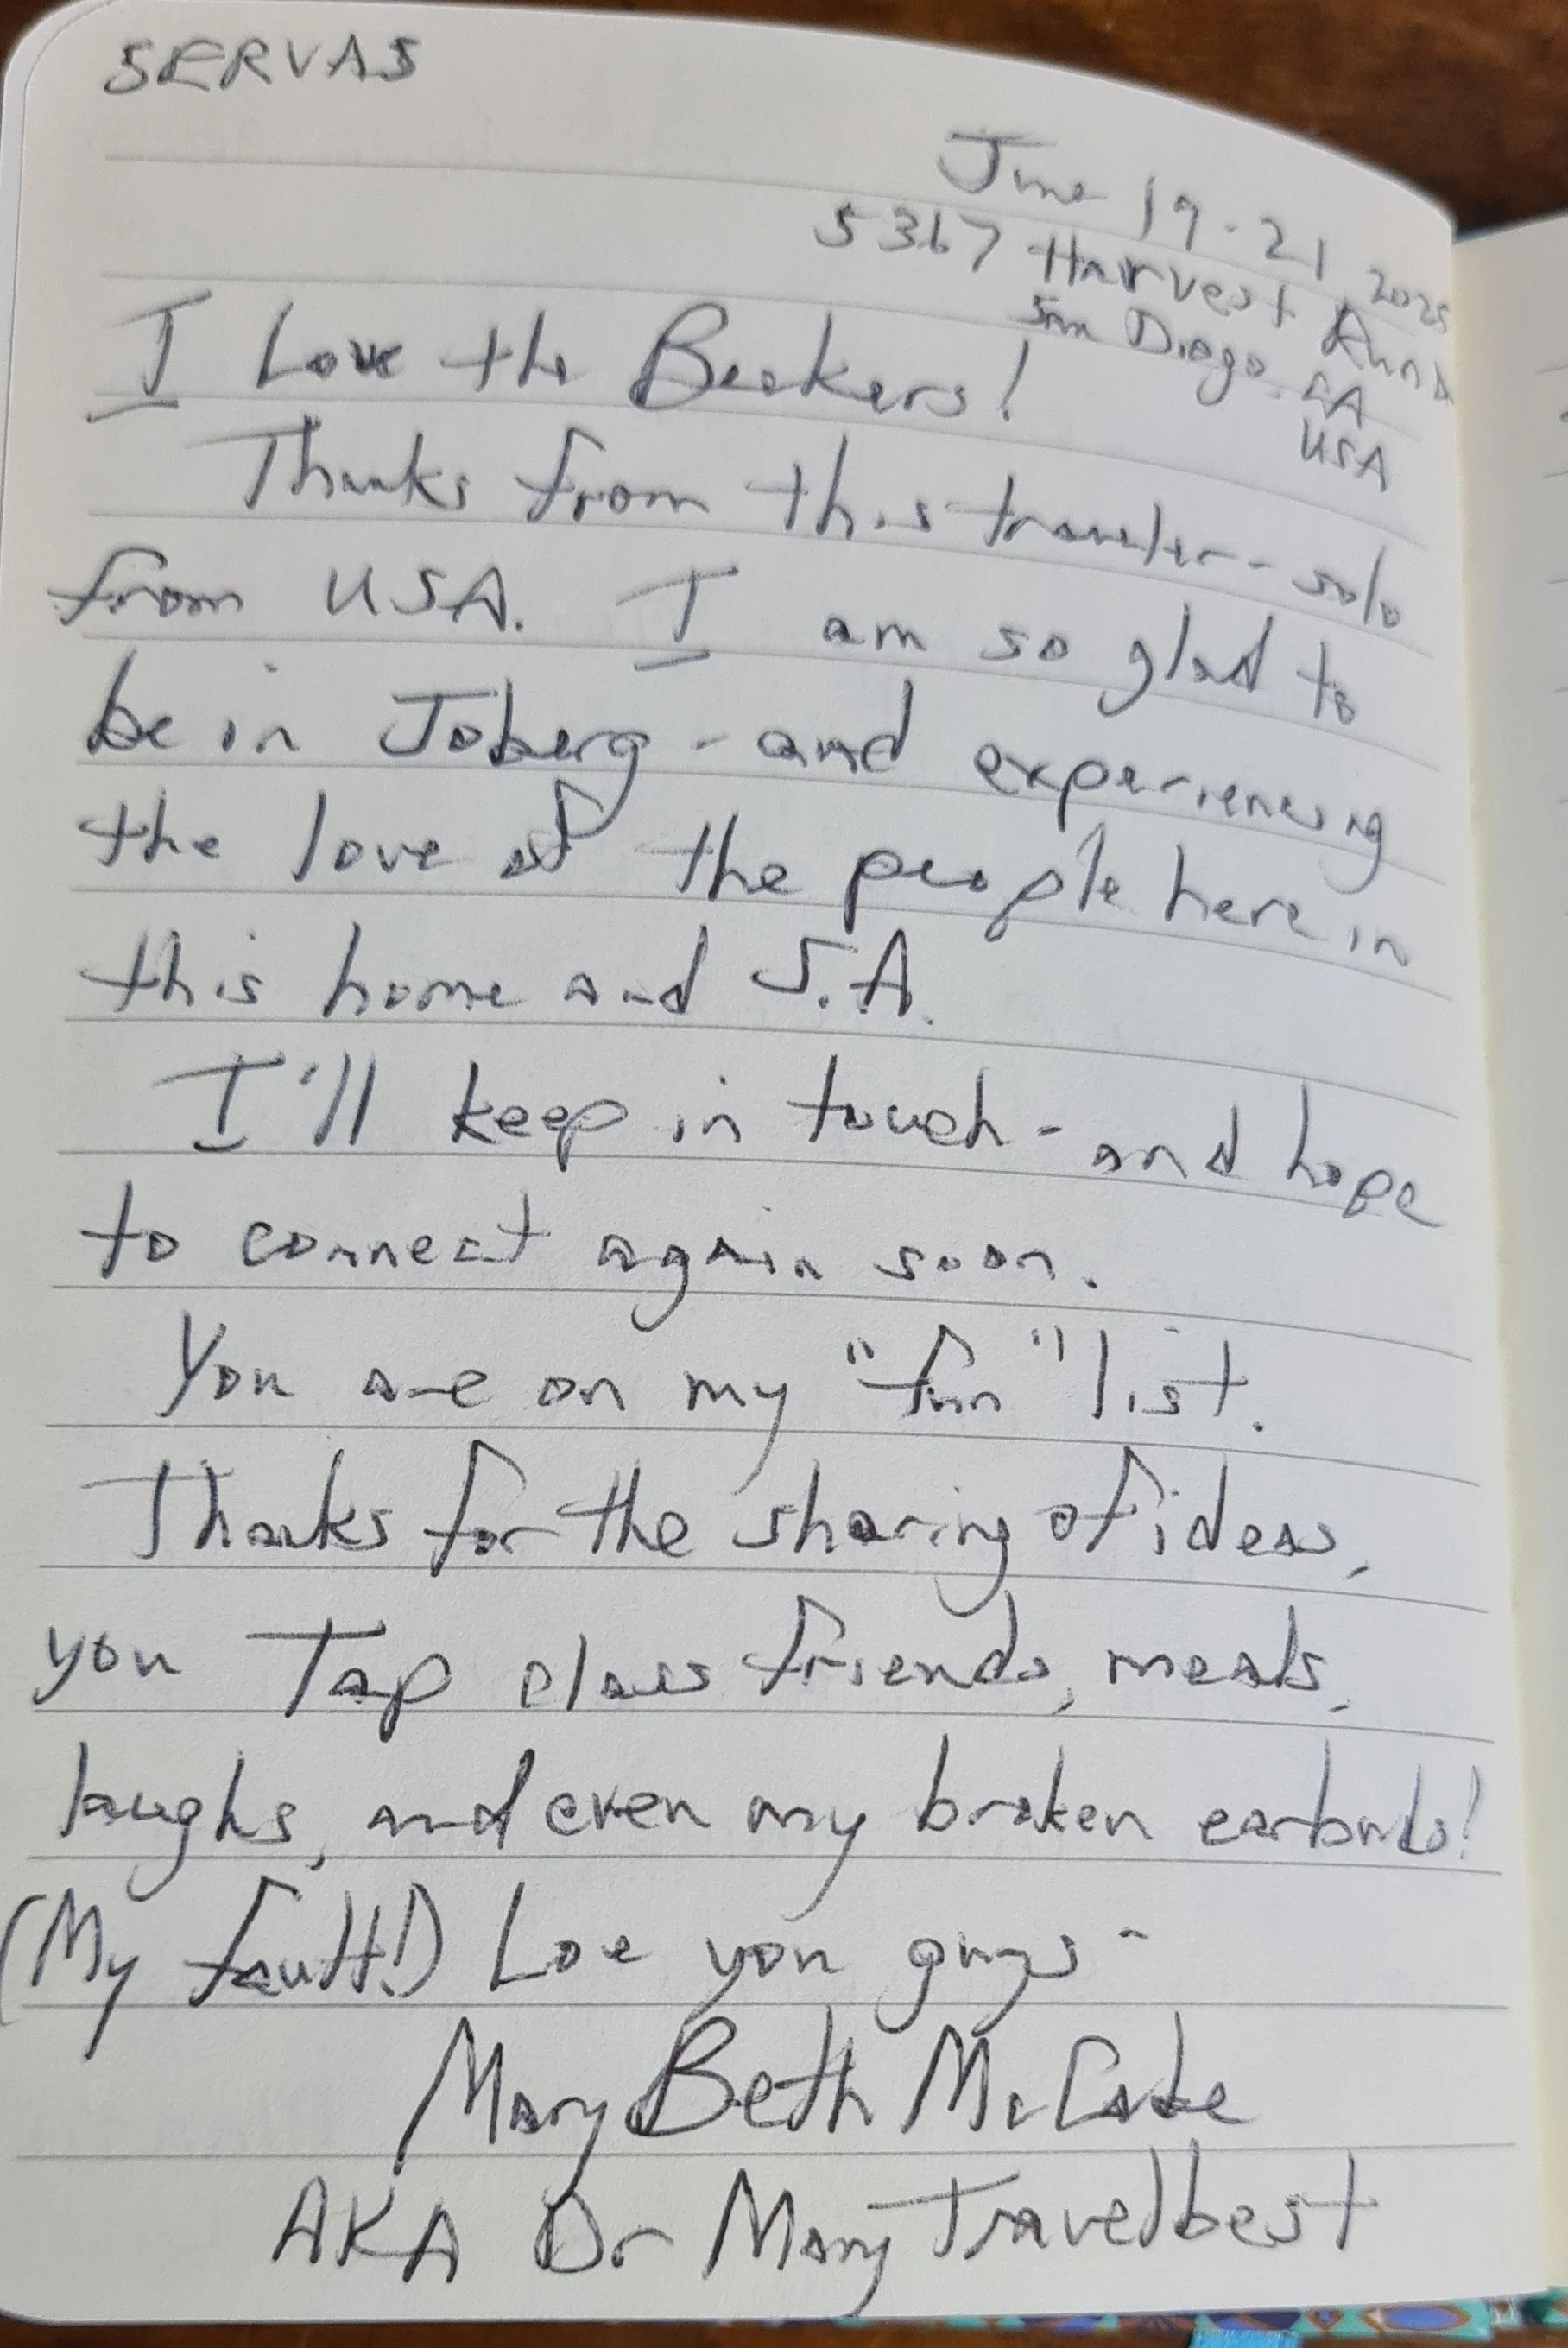 SERVAS
June 19-21, 2025
5367 Harvest Run D
San Diego, CA
USA
I Love the Beekers!
Thanks from this traveler - solo
from USA. I am so glad to
be in Joberg - and experiencing
the love of the people here in
this home and S.A.
I'll keep in touch - and hope
to connect again soon.
You are on my "fun" list.
Thanks for the sharing of ideas,
you Tap class friends, meals,
laughs, and even my broken earbuds!
(My fault!) Love you guys -
Mary Beth McCabe
AKA Dr Mary Travelbest